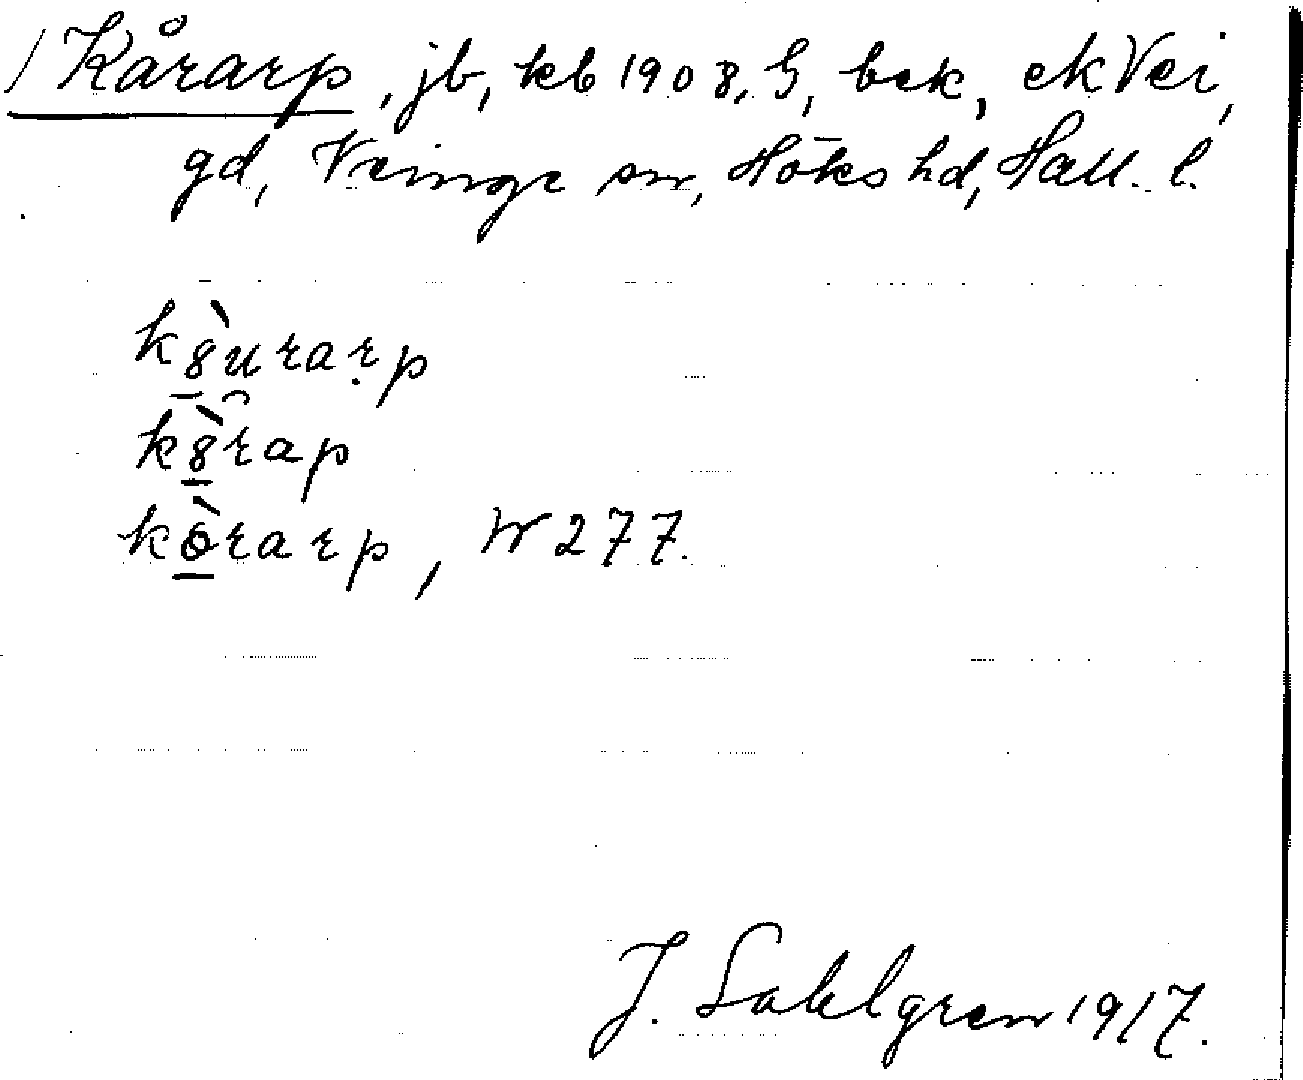 / Kårarp, jb, kb 1908, G, bek, ekVei,
gd, Veinge sn, Höks hd, Hall. l.
kòurarp
kòrap
kòrarp, W 277.
J. Sahlgren 1917.